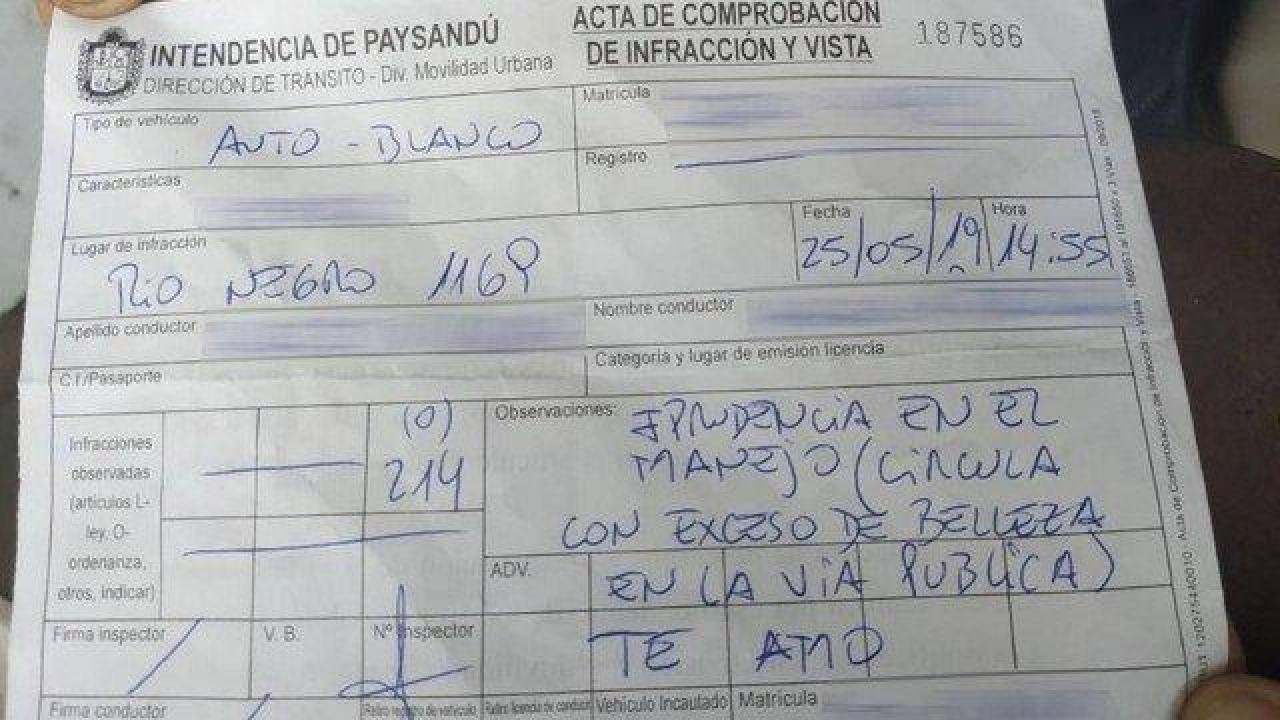 INTENDENCIA DE PAYSANDÚ
DIRECCIÓN DE TRÁNSITO - Div. Movilidad Urbana
ACTA DE COMPROBACIÓN
DE INFRACCIÓN Y VISTA
187586
Tipo de vehículo
AUTO - BLANCO
Matrícula
Características
Registro
Lugar de infracción
RIO NEGRO 1169
Fecha
25/05/19
Hora
14:55
Apellido conductor
Nombre conductor
C.I./Pasaporte
Categoría y lugar de emisión licencia
Infracciones
observadas
(artículos L-
ley, O-
ordenanza,
otros, indicar)
(0)
214
Observaciones:
IPRUDENCIA EN EL
MANEJO (CIRCULA
CON EXCESO DE BELLEZA
EN LA VIA PUBLICA)
ADV.
TE AMO
Firma inspector
V. B.
Nº Inspector
Firma conductor
Retiro registro de vehículo
Retiro licencia de conducir
Vehículo Incautado
Matrícula